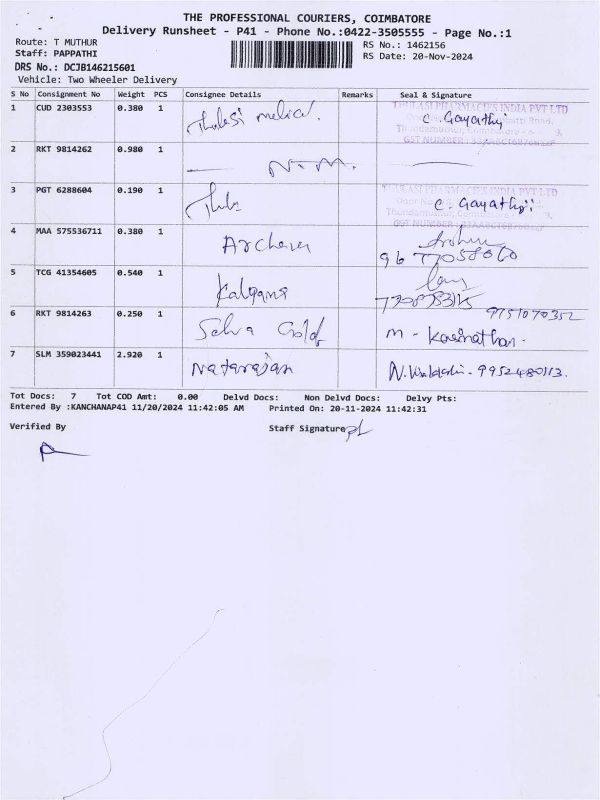 THE PROFESSIONAL COURIERS, COIMBATORE
Delivery Runsheet - P41 - Phone No.:0422-3505555 - Page No.:1
Route: T MUTHUR
Staff: PAPPATHI
RS No.: 1462156
RS Date: 20-Nov-2024
DRS No.: DCJB146215601
Vehicle: Two Wheeler Delivery
S No Consignment No Weight PCS Consignee Details Remarks Seal & Signature
1 CUD 2303553 0.380 1 THULASI PHARMACIES INDIA PVT LTD
C. Gayathri
2 RKT 9814262 0.980 1 N.M.
3 PGT 6288604 0.190 1 THULASI PHARMACIES INDIA PVT LTD
C. Gayathri
4 MAA 575536711 0.380 1 Archana
5 TCG 41354605 0.540 1 Kalpana
9751070352
6 RKT 9814263 0.250 1 Selva Gold M - Kasinathan.
7 SLM 359023441 2.920 1 Natarajan 9952480113.
Tot Docs: 7 Tot COD Amt: 0.00 Delvd Docs: Non Delvd Docs: Delvy Pts:
Entered By :KANCHANAP41 11/20/2024 11:42:05 AM Printed On: 20-11-2024 11:42:31
Verified By Staff Signature